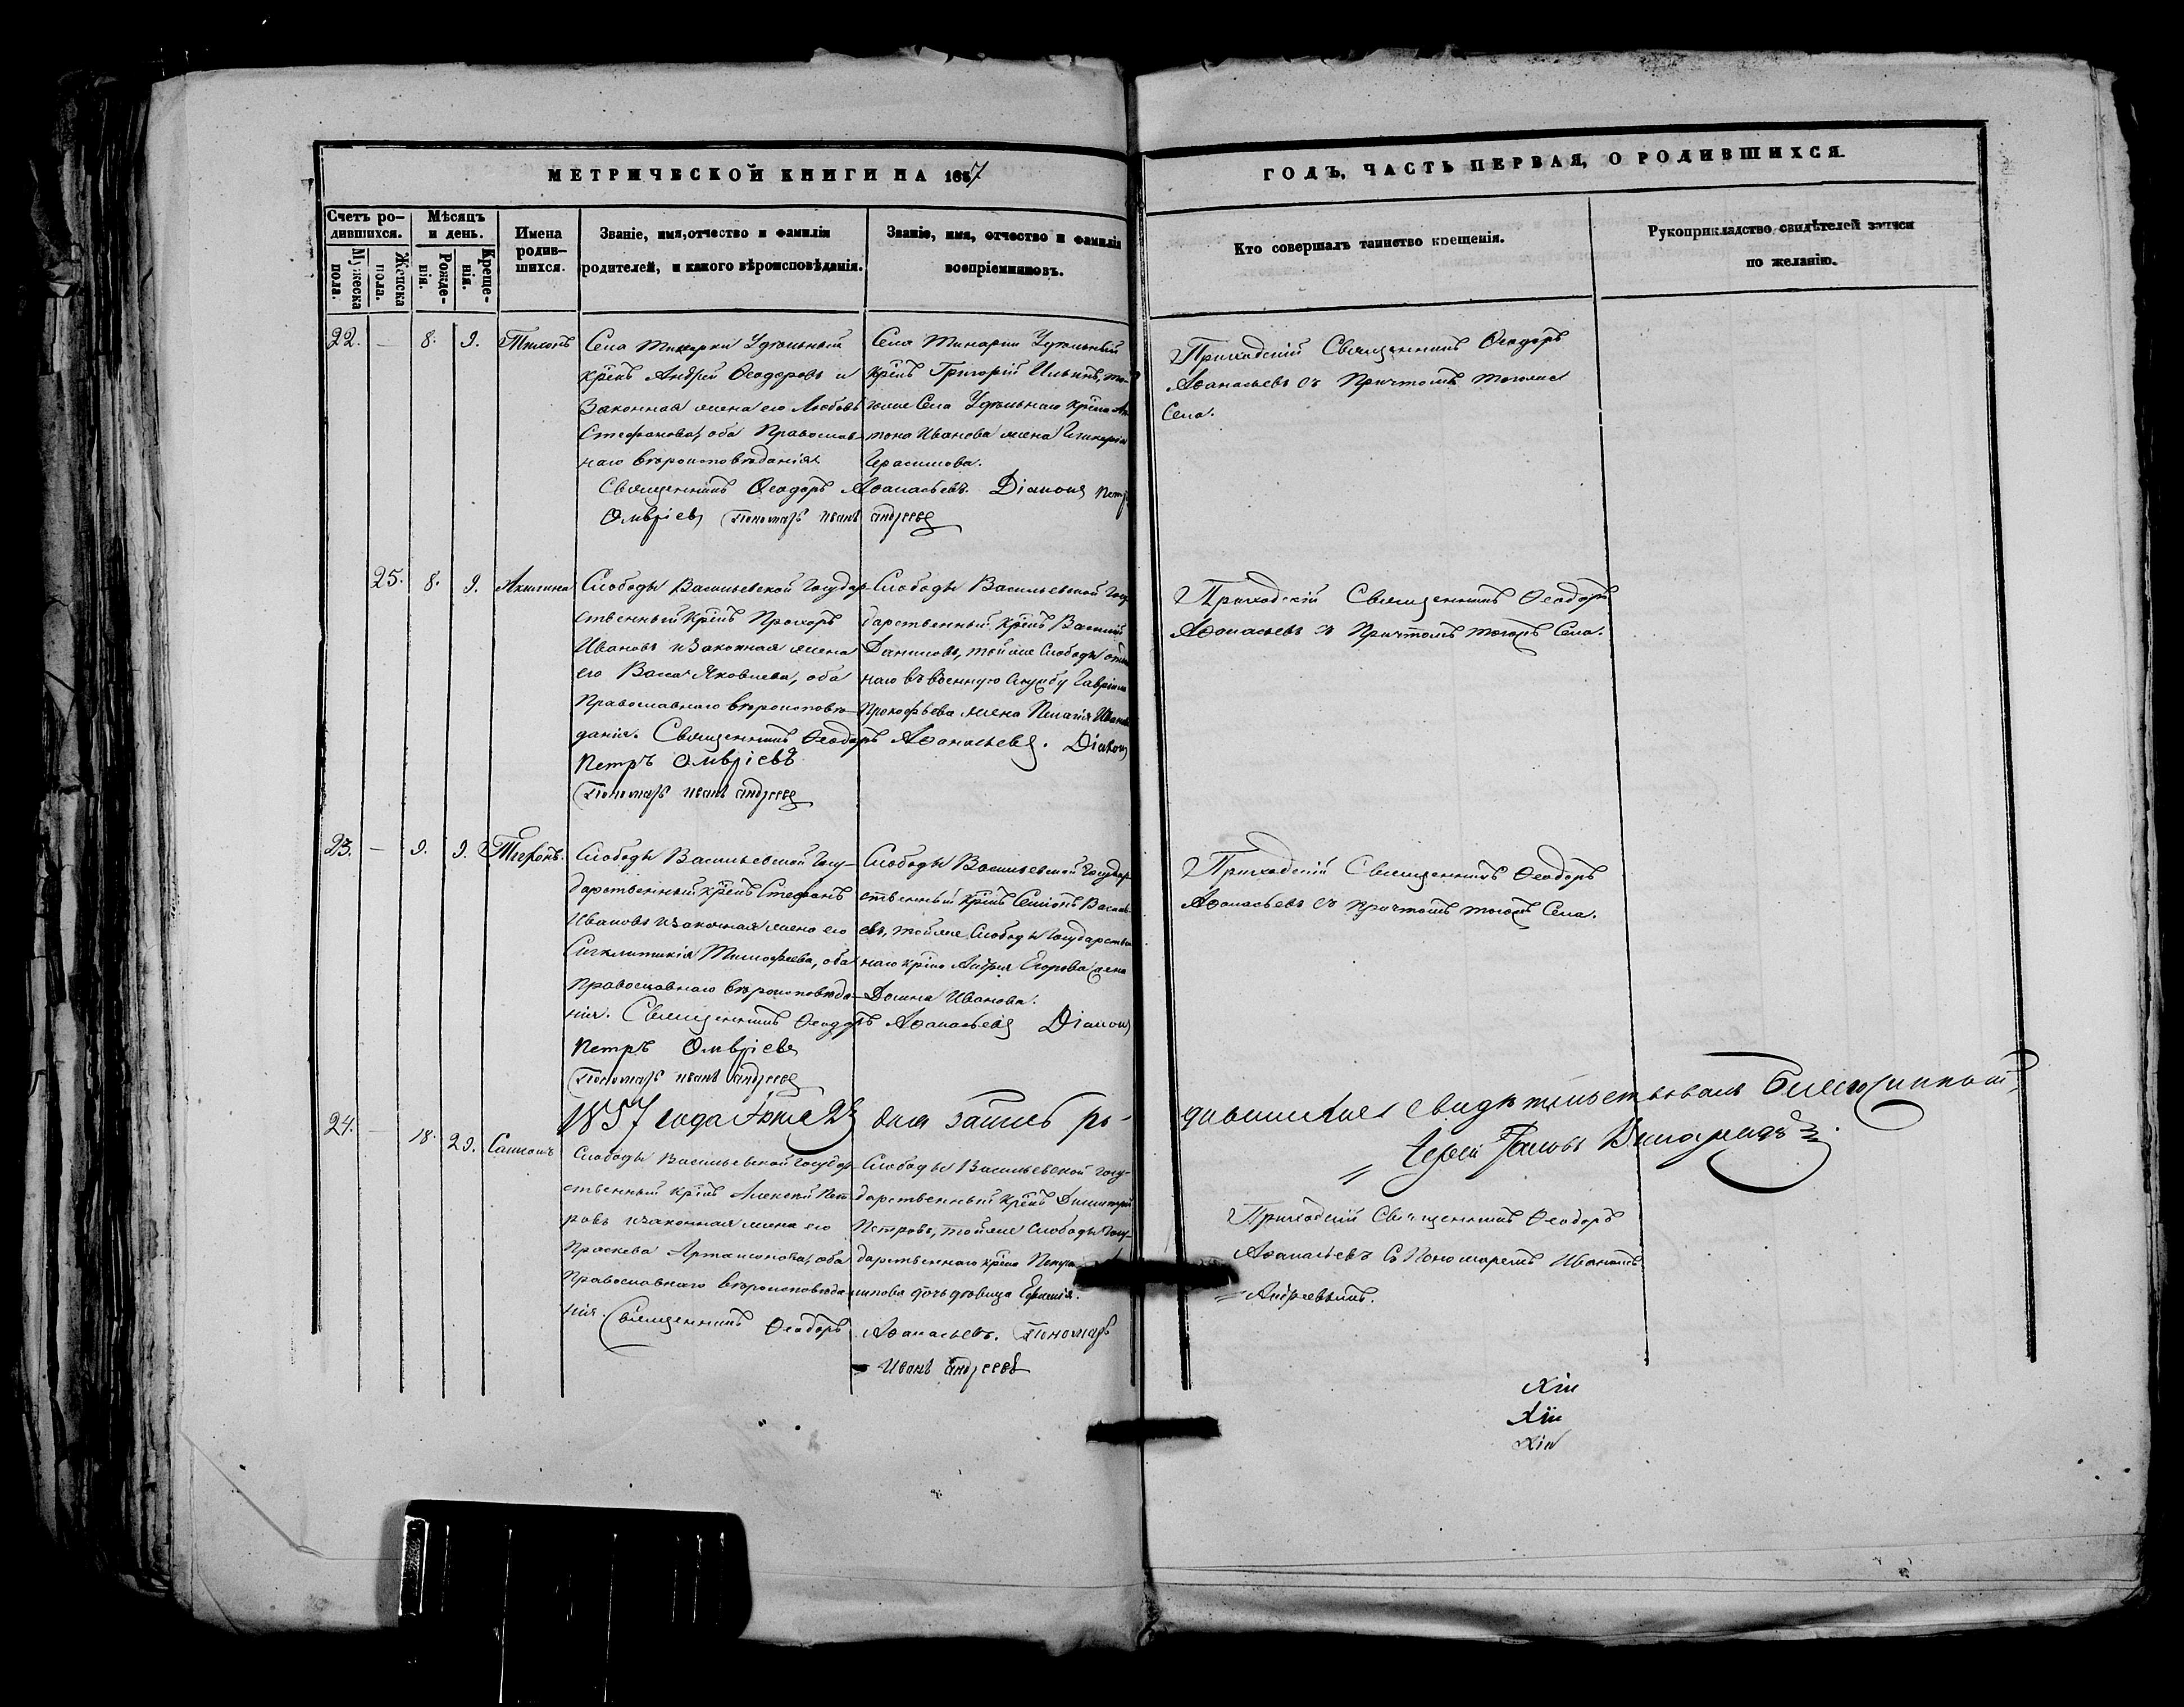 МЕТРИЧЕСКОЙ КНИГИ НА 1857
ГОДЪ, ЧАСТЬ ПЕРВАЯ, О РОДИВШИХСЯ.
Счетъ ро-
дившихся.
Мужеска пола.
Женска пола.
Мѣсяцъ
и день.
Рожде-
нія.
Креще-
нія.
Имена
родив-
шихся.
Званіе, имя, отчество и фамилія
родителей, и какого вѣроисповѣданія.
Званіе, имя, отчество и фамилія
воспріемниковъ.
Кто совершалъ таинство крещенія.
Рукоприкладство свидѣтелей записи
по желанію.
22. — 8. 9. Тихонъ
Села Удѣльный
крѣнъ Андрей Ѳеодоровъ и
Законная жена его Любовь
Стефанова, оба Православ-
наго вѣроисповѣданія
Села Удѣльный
крѣнъ Григорій Ильинъ, то-
гоже Села Удѣльнаго крѣна Ан-
тона Иванова жена Гликерія
Герасимова.
Священникъ Ѳеодоръ Аѳанасьевъ. Діаконъ Петръ
Омвріевъ Пономарь Иванъ Андреевъ
Приходскій Священникъ Ѳеодоръ
Аѳанасьевъ съ Причтомъ тогоже
Села.
25. 8. 9. Акилина
Слободы Васильевской Государ-
ственный крѣнъ Прохоръ
Ивановъ и законная жена
его Васса Яковлева, оба
Православнаго вѣроисповѣ-
данія. Священникъ Ѳеодоръ Аѳанасьевъ. Діаконъ
Петръ Омвріевъ
Пономарь Иванъ Андреевъ
Слободы Васильевской Госу-
дарственный крѣнъ Василій
Даниловъ, тойже Слободы
наго въ военную службу Гавріила
Прокофьева жена Пелагія Иванова
Приходскій Священникъ Ѳеодоръ
Аѳанасьевъ съ Причтомъ тогожъ Села.
23. — 9. 9. Тихонъ.
Слободы Васильевской Госу-
дарственный крѣнъ Стефанъ
Ивановъ и законная жена его
Сигклитикія Тимофеева, оба
Православнаго вѣроисповѣда-
нія. Священникъ Ѳеодоръ Аѳанасьевъ Діаконъ
Петръ Омвріевъ
Пономарь Иванъ Андреевъ
Слободы Васильевской Государ-
ственный крѣнъ Семіонъ Василь-
евъ, тойже Слободы Государствен-
наго крѣна Андрея Егорова жена
Домна Иванова.
Приходскій Священникъ Ѳеодоръ
Аѳанасьевъ съ Причтомъ тогожъ Села.
1857 года 23 дня запись ро-
дившихся свидѣтельствовалъ Благочинный,
Іерей
24. — 18. 29. Сампсонъ
Слободы Васильевской Государ-
ственный крѣнъ Алексѣй Пет-
ровъ и законная жена его
Праскева Артамонова, оба
Православнаго вѣроисповѣда-
нія. Священникъ Ѳеодоръ Аѳанасьевъ. Пономарь
Иванъ Андреевъ
Слободы Васильевской Госу-
дарственный крѣнъ Димитрій
Петровъ, тойже Слободы Госу-
дарственнаго крѣна
дочь дѣвица
Приходскій Священникъ Ѳеодоръ
Аѳанасьевъ Съ Пономаремъ Иваномъ
Андреевымъ.